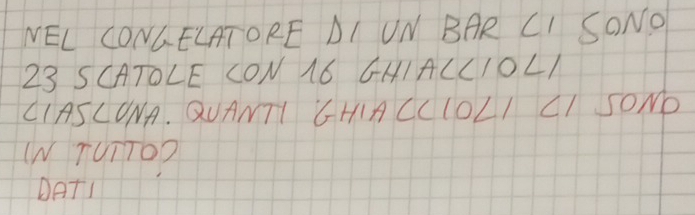 NEL CONGELATORE DI UN BAR CI SONO
23 SCATOLE CON 16 GHIACCIOLI
CIASCUNA. QUANTI GHIACCIOLI CI SONO
IN TUTTO?
DATI